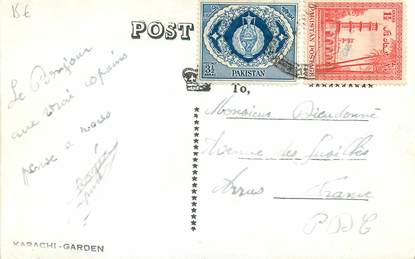 15 €
POST
3½ As
PAKISTAN
1½ As
PAKISTAN POSTAGE
To,
Le Bonjour
aux vrai copains
pense a vous
Monsieur Dieudonné
Avenue des Fusillés
Arras France
P D C
KARACHI-GARDEN